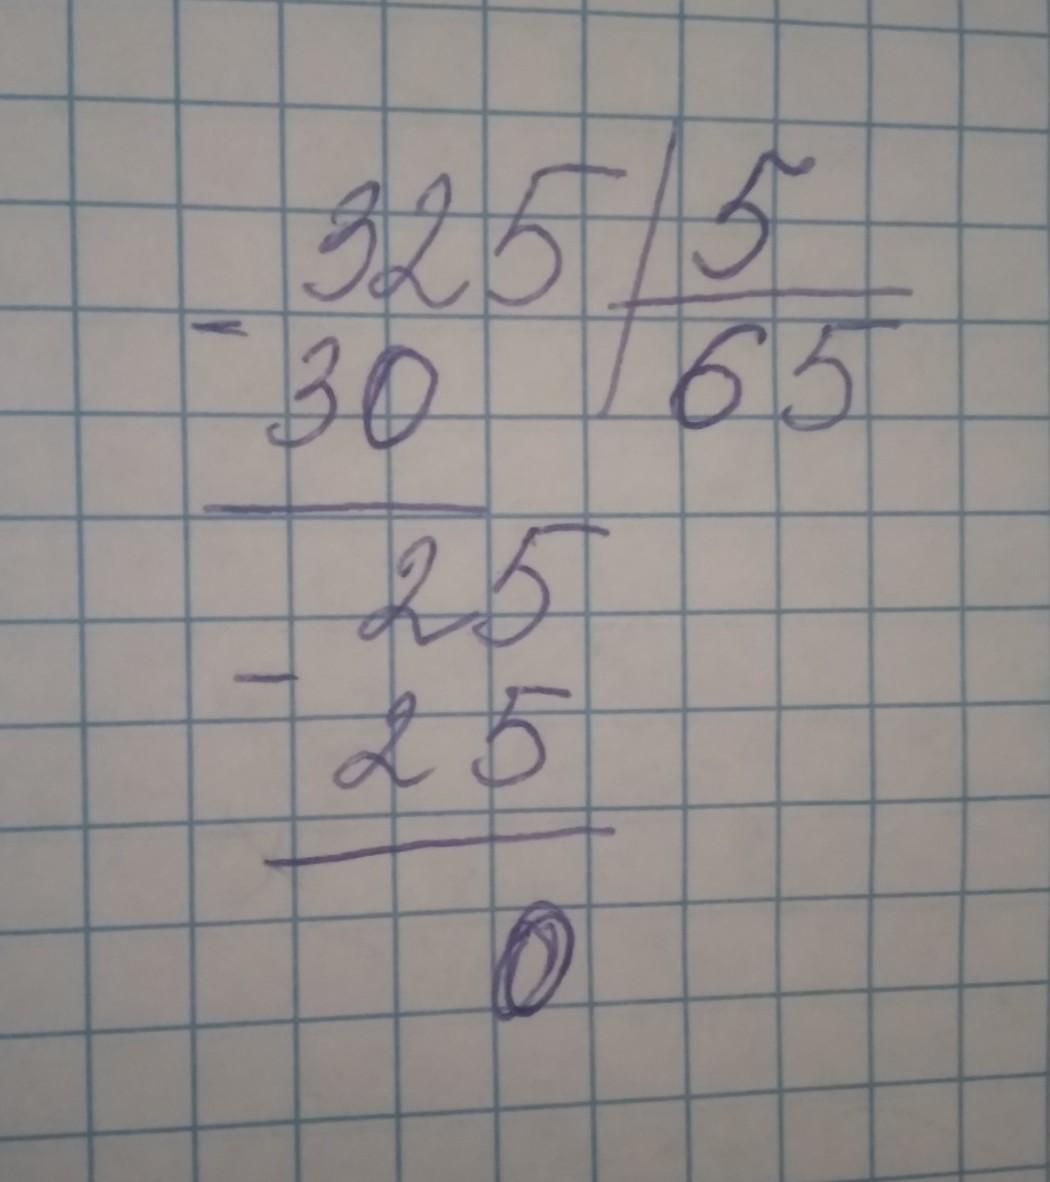 325 5
- 30 65
25
- 25
0